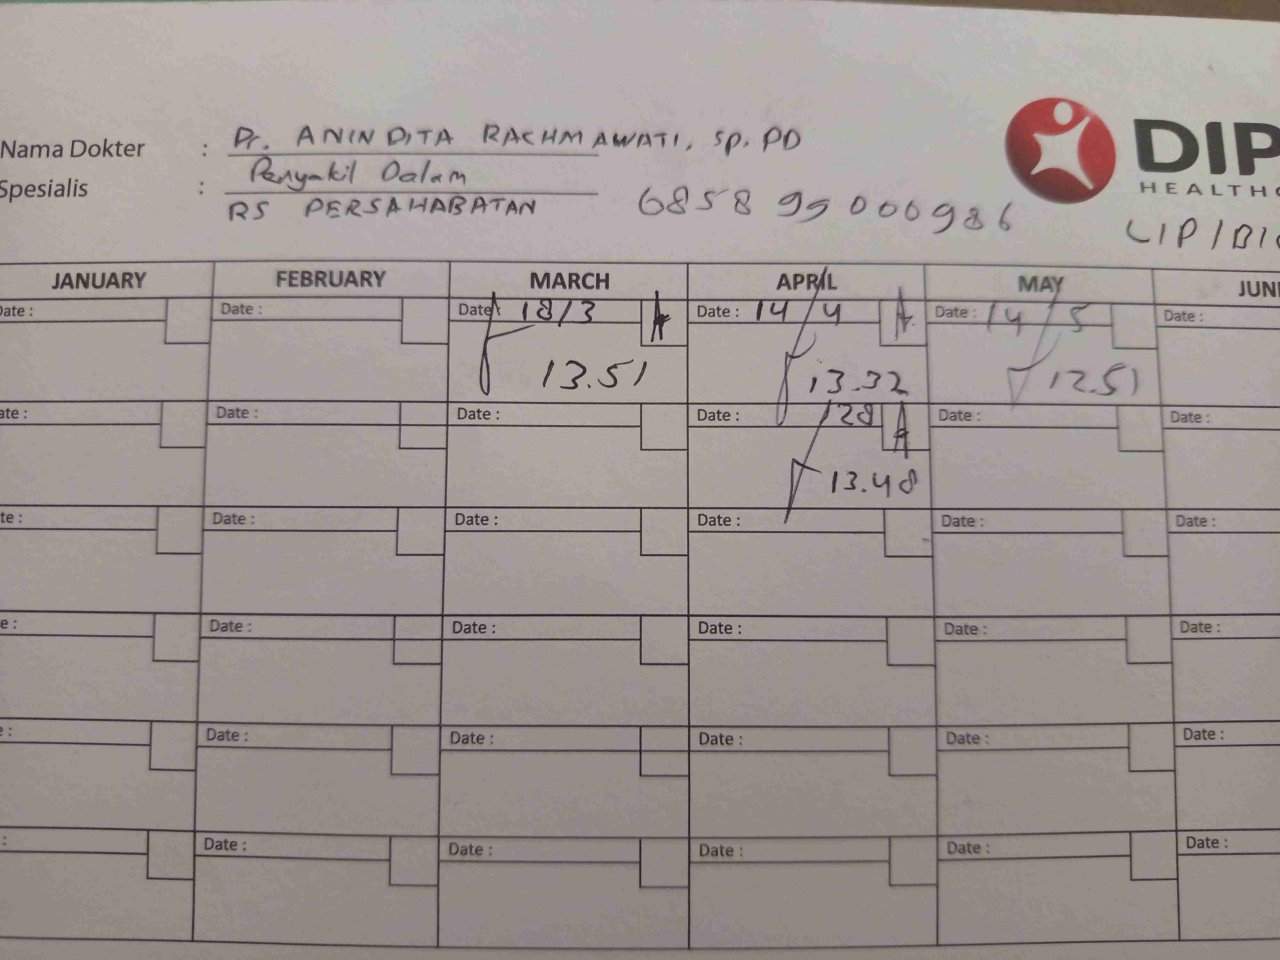 Nama Dokter : Dr. ANINDITA RACHMAWATI, Sp.PD
Spesialis : Penyakit Dalam
RS PERSAHABATAN 6858 99000986
DIP
HEALTHC
LIP/BI
JANUARY FEBRUARY MARCH APRIL MAY JUN
Date : Date : Date 18/3 A Date : 14/4 A Date : 14/5 Date :
13.51 13.32 12.51
ate : Date : Date : Date : /28 A Date : Date :
13.48
te : Date : Date : Date : Date : Date :
e : Date : Date : Date : Date : Date :
: Date : Date : Date : Date : Date :
: Date : Date : Date : Date : Date :